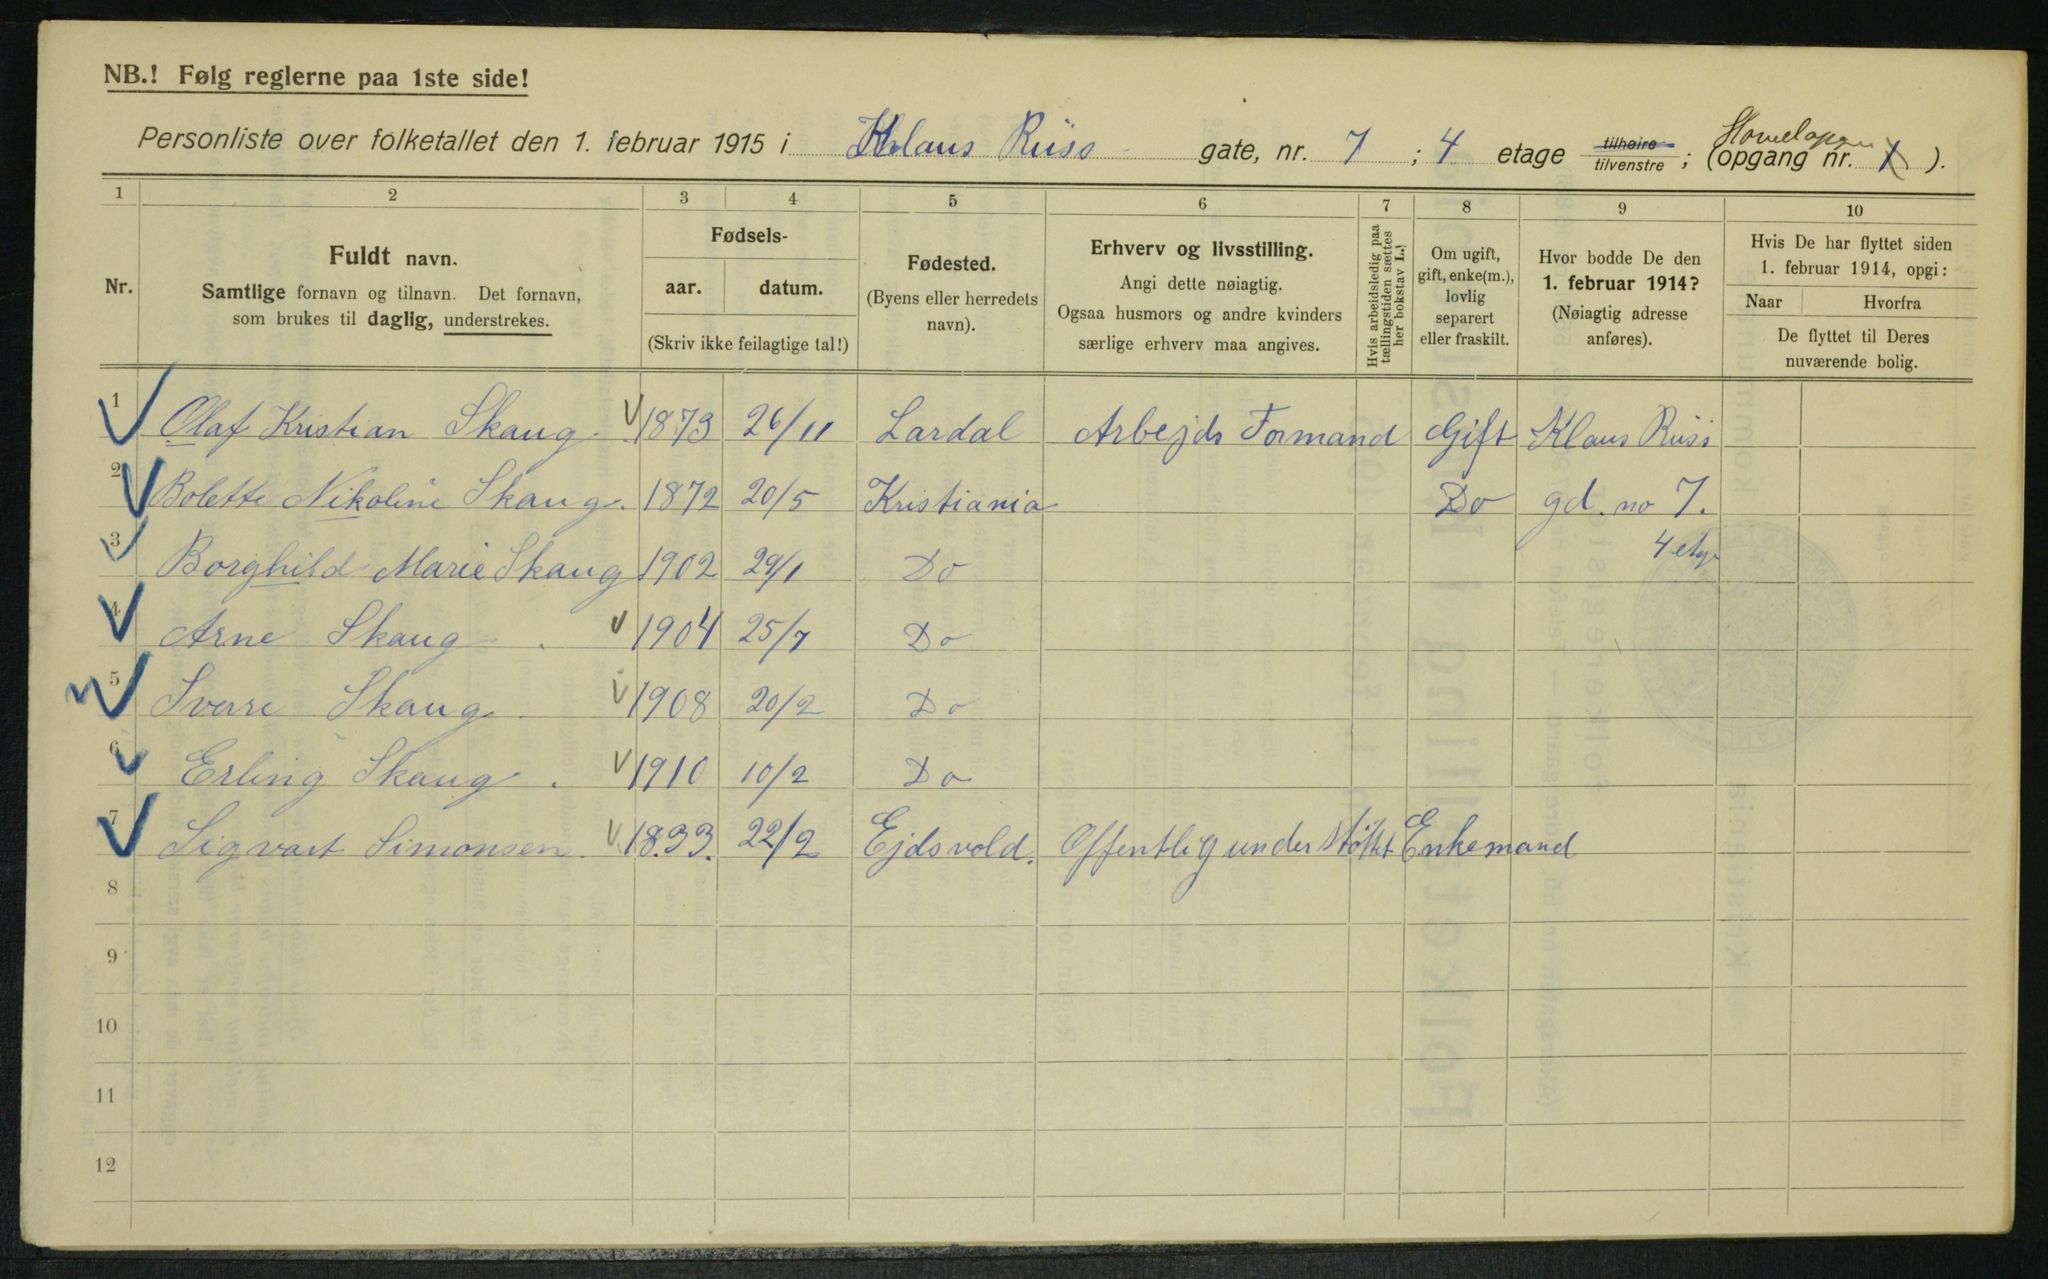 NB.! Følg reglerne paa 1ste side!
Personliste over folketallet den 1. februar 1915 i Klaus Rüss gate, nr. 7 ; 4 etage tilhøire tilvenstre ; (opgang nr. 1 ).
1 2 3 4 5 6 7 8 9 10
Nr.
Fuldt navn.
Samtlige fornavn og tilnavn. Det fornavn,
som brukes til daglig, understrekes.
Fødsels-
aar. datum.
(Skriv ikke feilagtige tal!)
Fødested.
(Byens eller herredets
navn).
Erhverv og livsstilling.
Angi dette nøiagtig.
Ogsaa husmors og andre kvinders
særlige erhverv maa angives.
Hvis arbeidsledig paa
tællingstiden sættes
her bokstav L.!
Om ugift,
gift, enke(m.),
lovlig
separert
eller fraskilt.
Hvor bodde De den
1. februar 1914?
(Nøiagtig adresse
anføres).
Hvis De har flyttet siden
1. februar 1914, opgi:
Naar Hvorfra
De flyttet til Deres
nuværende bolig.
1 Olaf Kristian Skaug 1873 26/11 Lardal Arbejds Formand Gift Klaus Rüss
2 Bolette Nikoline Skaug. 1872 20/5 Kristiania Do gd. no 7.
3 Borghild Marie Skaug 1902 29/1 Do 4 etg
4 Arne Skaug 1904 25/7 Do
5 Sverre Skaug 1908 20/2 Do
6 Erling Skaug 1910 10/2 Do
7 Sigvart Simonsen 1833. 22/2 Ejdsvold. Offentlig understöttet Enkemand
8
9
10
11
12